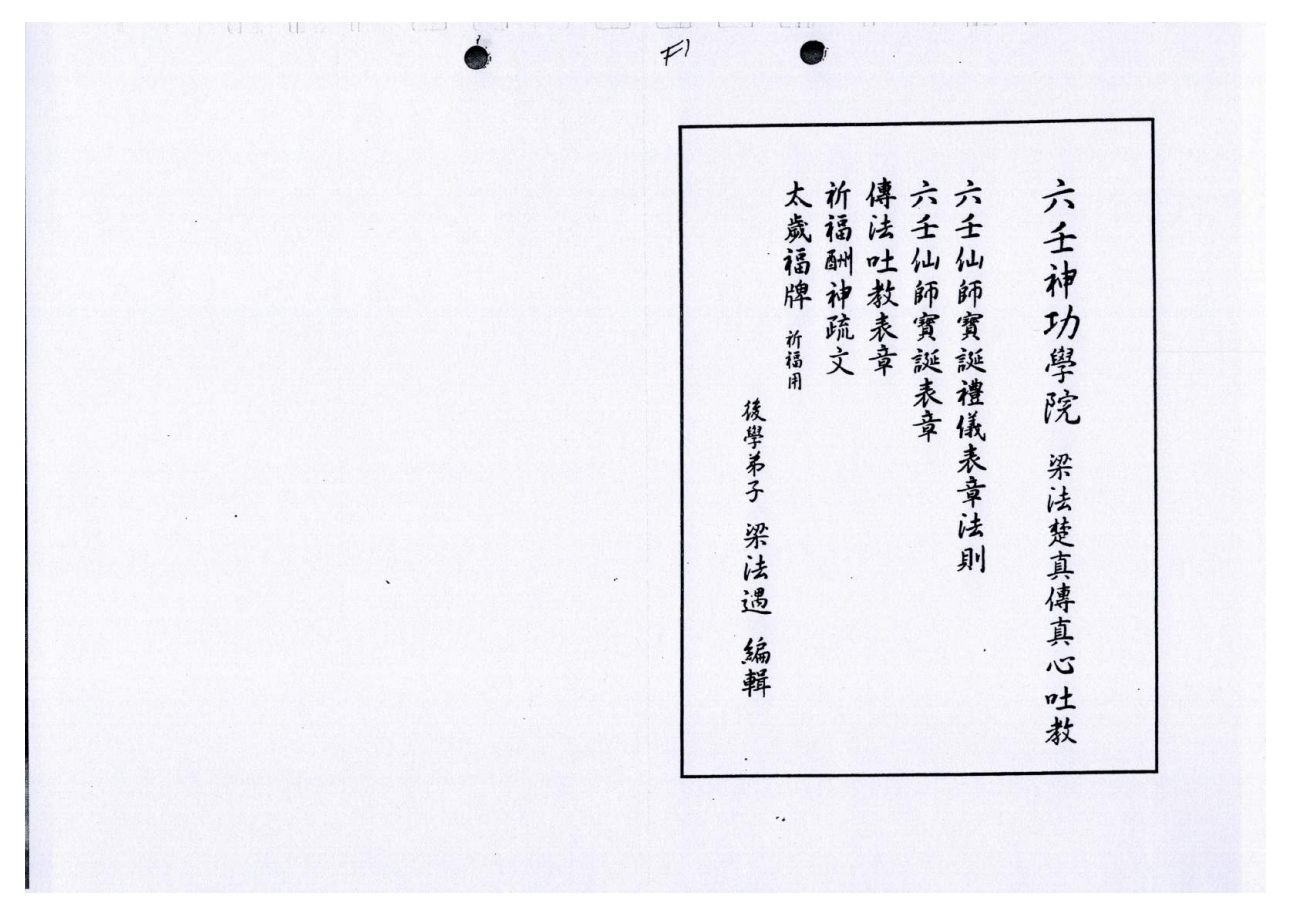 F1
六壬神功學院 梁法楚真傳真心吐教
六壬仙師寶誕禮儀表章法則
六壬仙師寶誕表章
傳法吐教表章
祈福酬神疏文
太歲福牌 祈福用
後學弟子 梁法遇 編輯